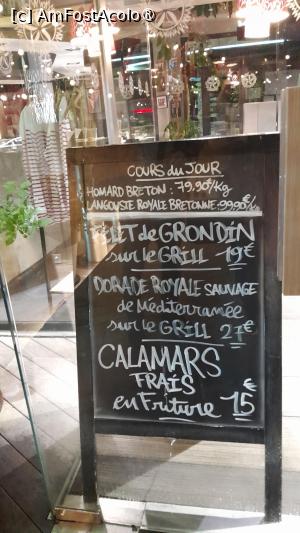 [c] AmFostAcolo®
COURS du JOUR
HOMARD BRETON : 79,90€/Kg
LANGOUSTE ROYALE BRETONNE : 99,90€/K
FILET de GRONDIN
sur le GRILL 19€
DORADE ROYALE SAUVAGE
de Méditerranée
sur le GRILL 21€
CALAMARS
FRAIS
en Friture 15€